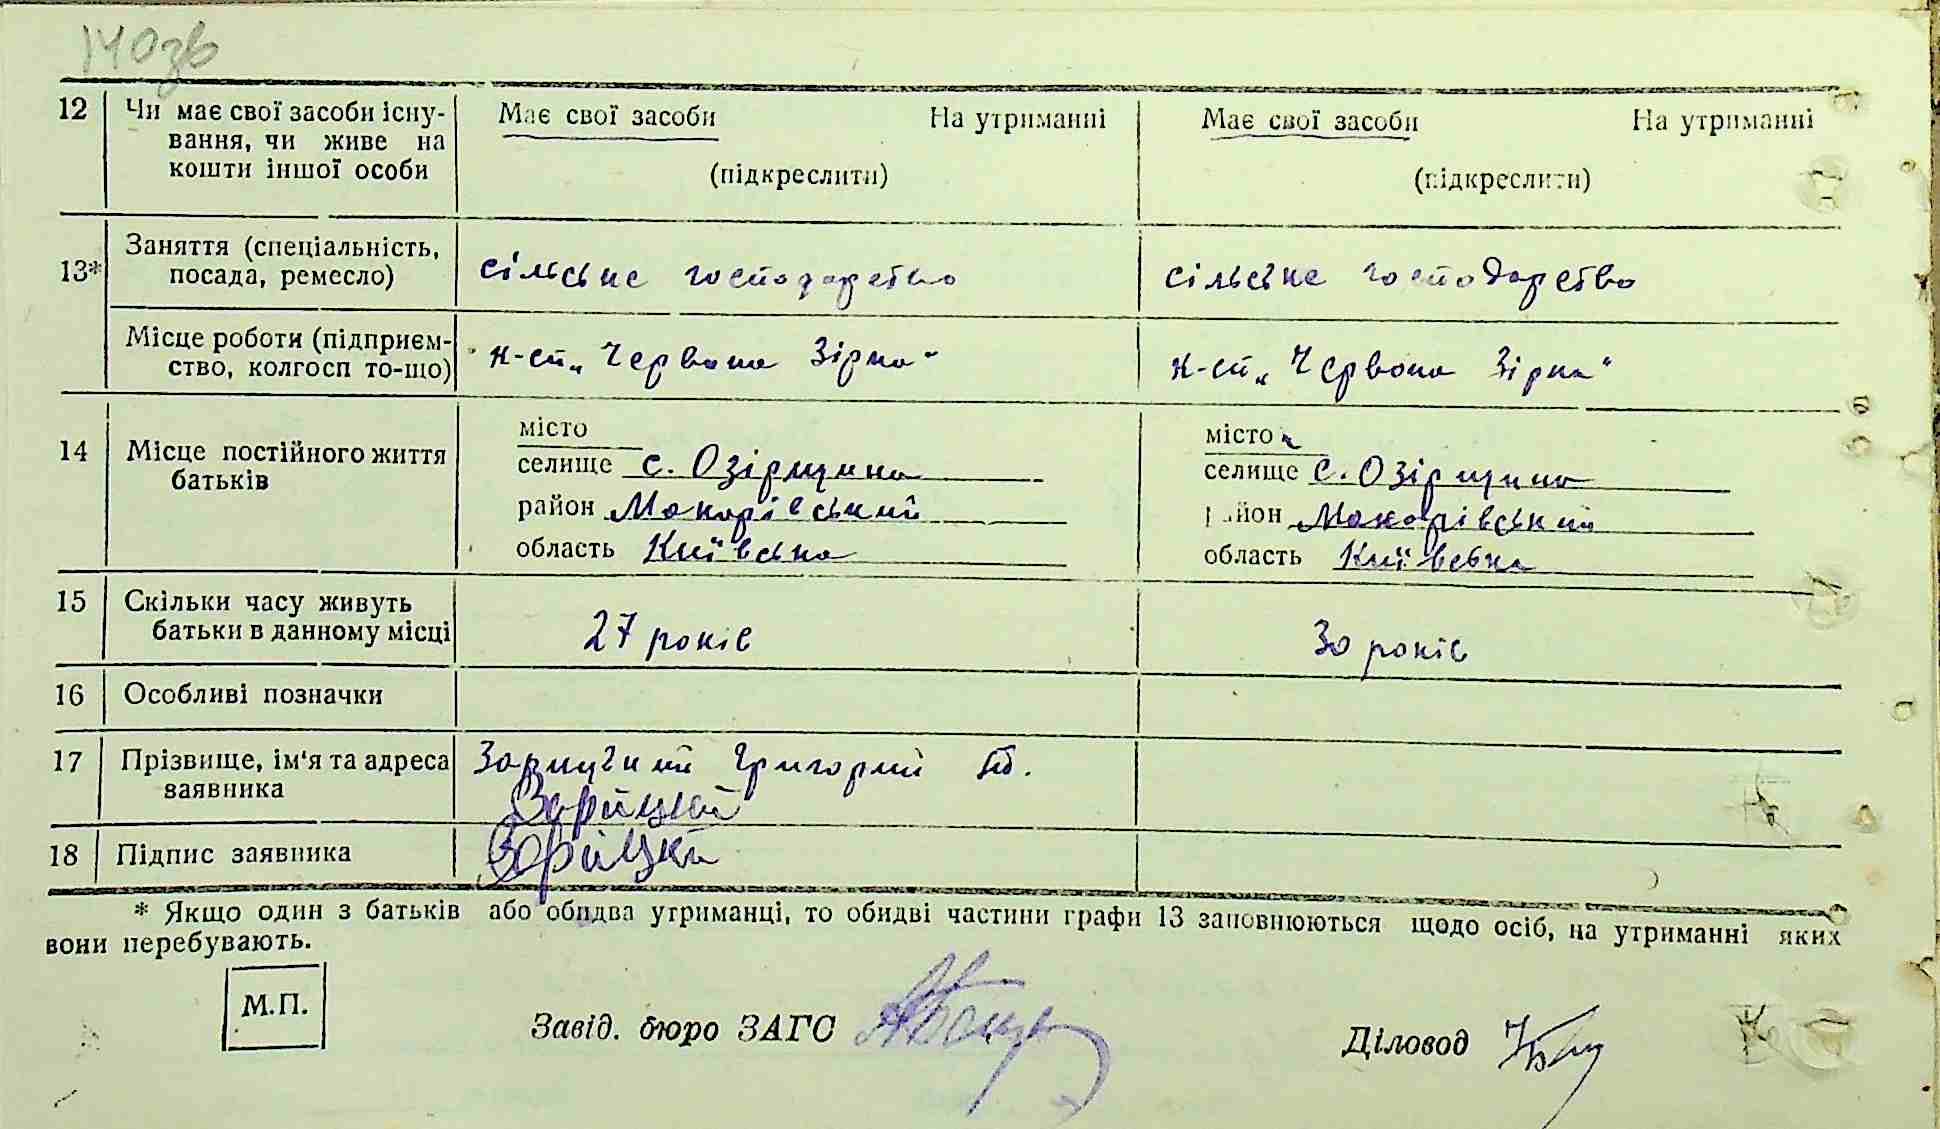 140зв
12 Чи має свої засоби існу- Має свої засоби На утриманні Має свої засоби На утриманні
вання, чи живе на
кошти іншої особи (підкреслити) (підкреслити)
Заняття (спеціальність,
13* посада, ремесло) сільське господарство сільське господарство
Місце роботи (підприєм- к-сп „Червона Зірка" к-сп „Червона Зірка"
ство, колгосп то-що)
місто місто
14 Місце постійного життя селище с. Озірщина селище с. Озірщина
батьків район Макарівський район Макарівський
область Київська область Київська
15 Скільки часу живуть
батьки в данному місці 27 років 30 років
16 Особливі позначки
17 Прізвище, ім'я та адреса Григорий
заявника Зарицкий
18 Підпис заявника Зарицки
* Якщо один з батьків або обидва утриманці, то обидві частини графи 13 заповнюються щодо осіб, на утриманні яких
вони перебувають.
М.П.
Завід. бюро ЗАГС Діловод